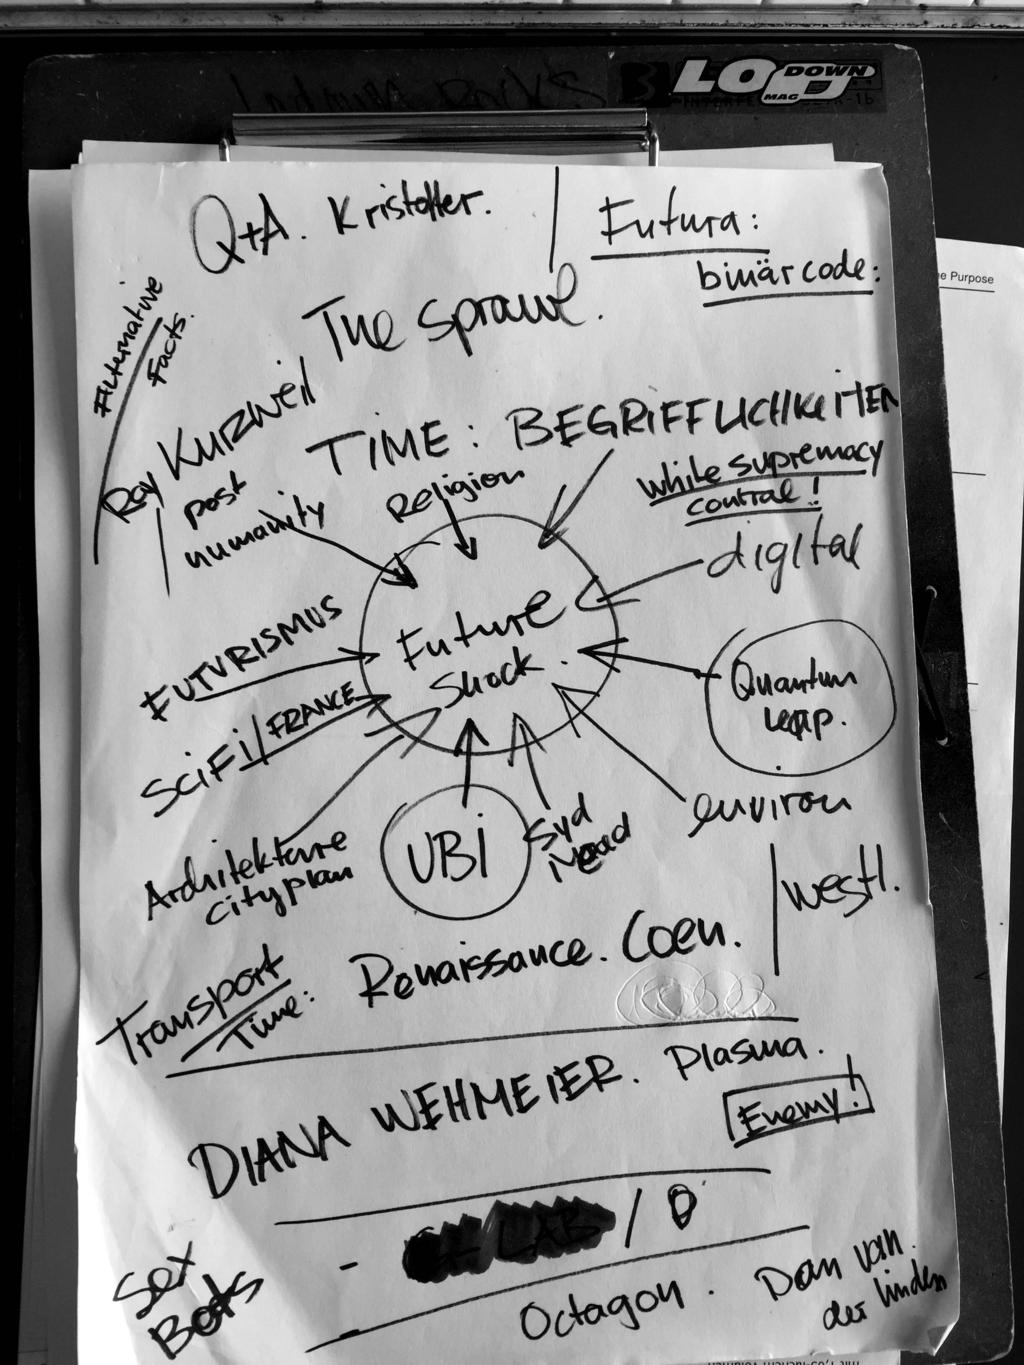 LODOWN
MAG
Q+A. Kristoffer.
Futura:
binärcode:
e Purpose
Alternative
Facts.
The Sprawl.
Ray Kurzweil
TIME: BEGRIFFLICHKEITEN
post
humanity
Religion
white supremacy
control!
digital
Future
Shock.
FUTURISMUS
SciFi/FRANCE
Quantum
leap.
Architekture
cityplan
UBi
Syd
Mead
environ
westl.
Transport
Time: Renaissance. Coen.
DIANA WEHMEIER. Plasma.
Enemy!
- LAB / O
Sex
Bots
Octagon. Dan van.
der linden